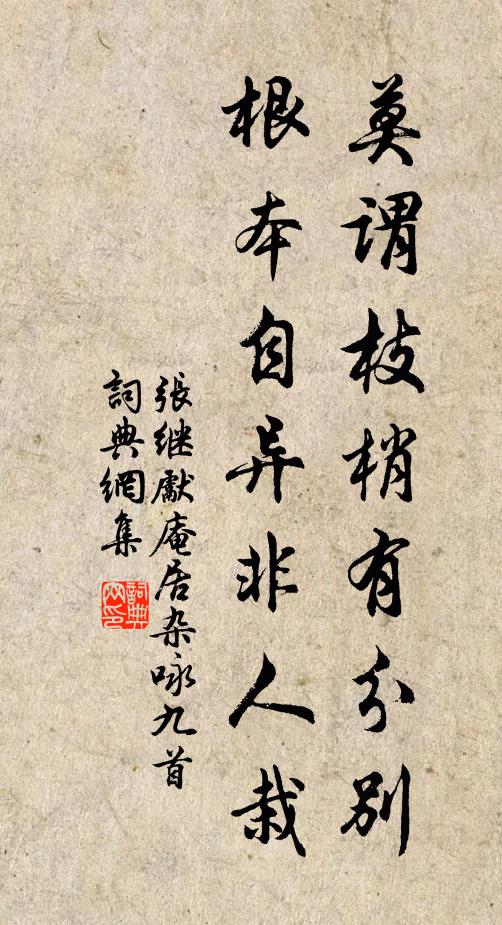 莫谓枝梢有分别
根本自异非人栽
張继獻庵居杂咏九首
詞典網集
詞典网印